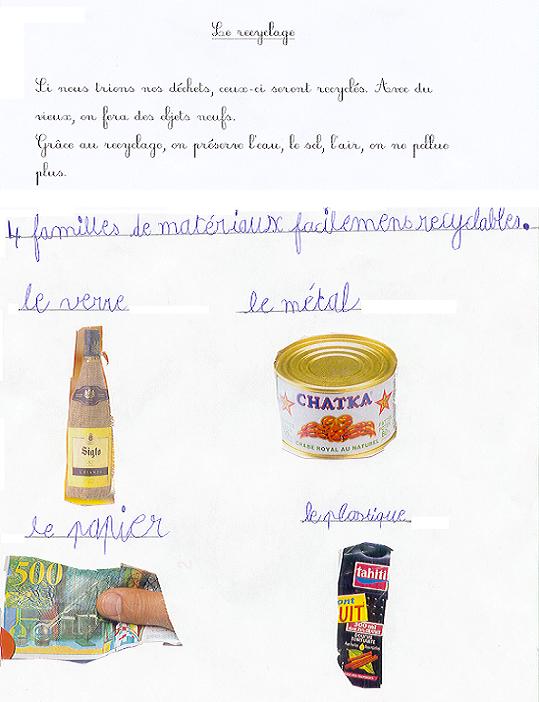 Le recyclage
Si nous trions nos déchets, ceux-ci seront recyclés. Avec du
vieux, on fera des objets neufs.
Grâce au recyclage, on préserve l'eau, le sol, l'air, on ne pollue
plus.
4 familles de matériaux facilemens recyclables.
le verre
le métal
Siglo
CRIANZA
CHATKA
CRABE ROYAL AU NATUREL
le papier
le plastique
500
tahiti
ont
UIT
300 ml
DOUCHE